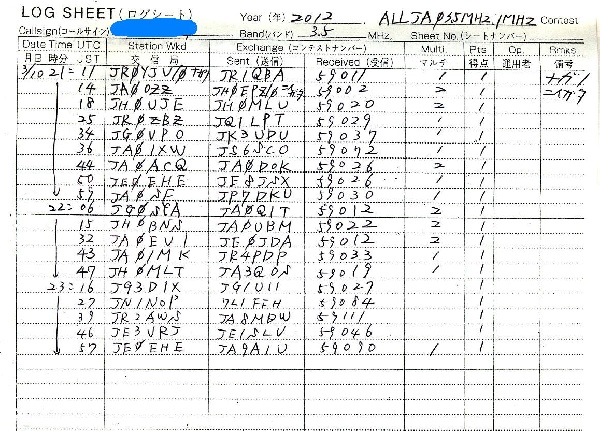 LOG SHEET (ログシート) Year (年) 2012 ALL JA0 3.5MHz, 1MHz Contest
Callsign (コールサイン) Band (バンド) 3.5 MHz, Sheet No. (シートナンバー)
Date Time UTC Station Wkd Exchange (コンテストナンバー) Multi. Pts Op. Rmks
月日 時分 JST 交信局 Sent (送信) Received (受信) マルチ 得点 運用者 備考
3/10 21:11 JR0YJU/0 JR1QBA 59011 1 1 ナガノ
14 JA0OZZ JH0EPZ/0 59002 2 1 ニイガタ
18 JH0UJE JH0MLU 59020 2 1
25 JR0ZBZ JQ1LPT 59029 1 1
34 JG0VPO JK3UDU 59037 1 1
36 JA0IXW JS6SCO 59072 1 1
44 JA0ACQ JA0DOK 59026 2 1
50 JE0EHE JE8JSX 59026 1 1
57 JA0SE JP7DKU 59030 1 1
22:06 JG0SPA JA0QIT 59012 2 1
15 JH0BNS JA0UBM 59022 2 1
32 JA0EUI JE0JDA 59012 2 1
43 JA0IMK JR4PDP 59033 1 1
47 JH0MLT JA3QOS 59019 1 1
23:16 JG3DIX JG1UII 59027 1
27 JN1NOP 7L1FFH 59084 1
39 JR2AWS JA8MDW 59111 1
46 JE3VRJ JE1SLU 59046 1
57 JE0EHE JA9AIU 59090 1 1